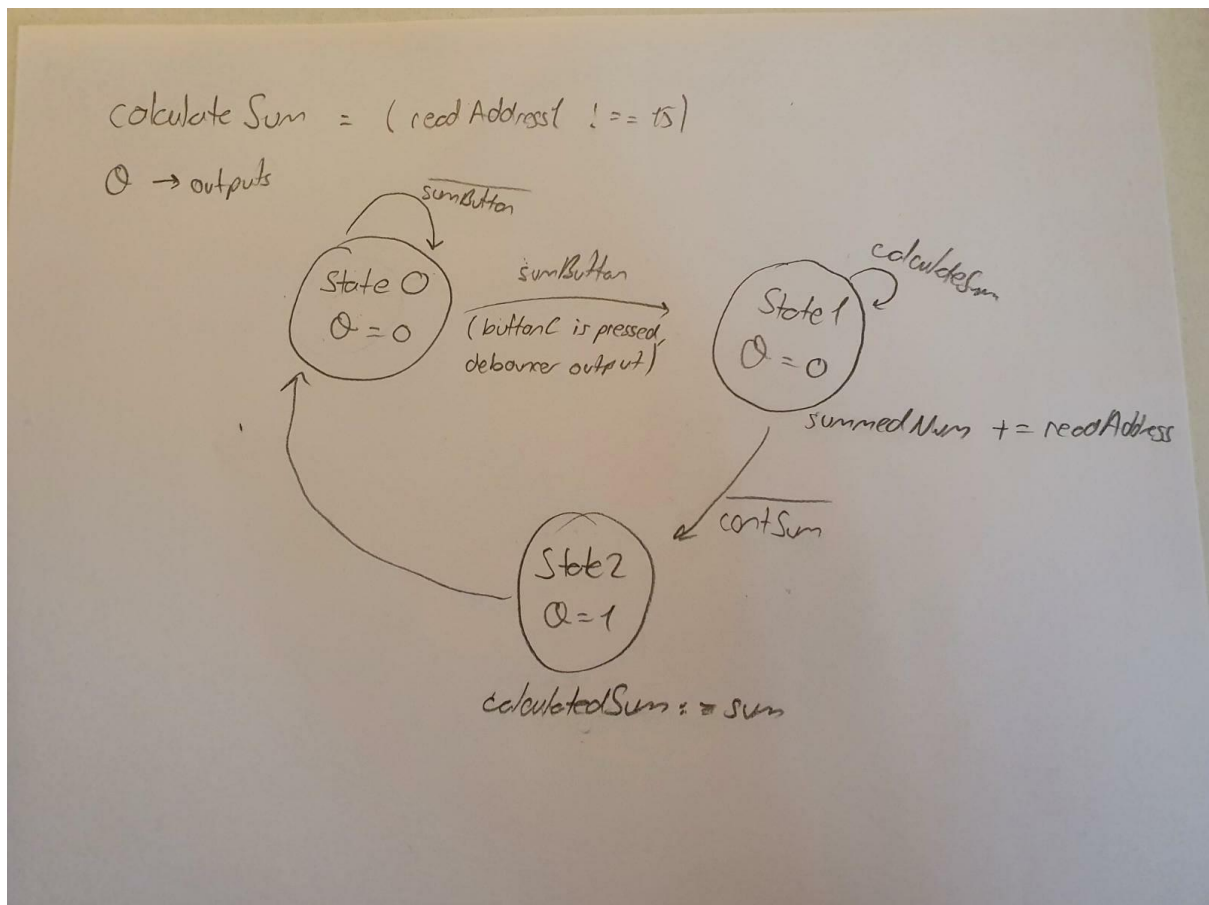 calculateSum = (readAddress1 !== 15)
Q → outputs
sumButton
State 0
Q = 0
sumButton
(buttonC is pressed,
debouncer output)
State 1
Q = 0
calculateSum
summedNum += readAddress
contSum
State 2
Q = 1
calculatedSum := sum